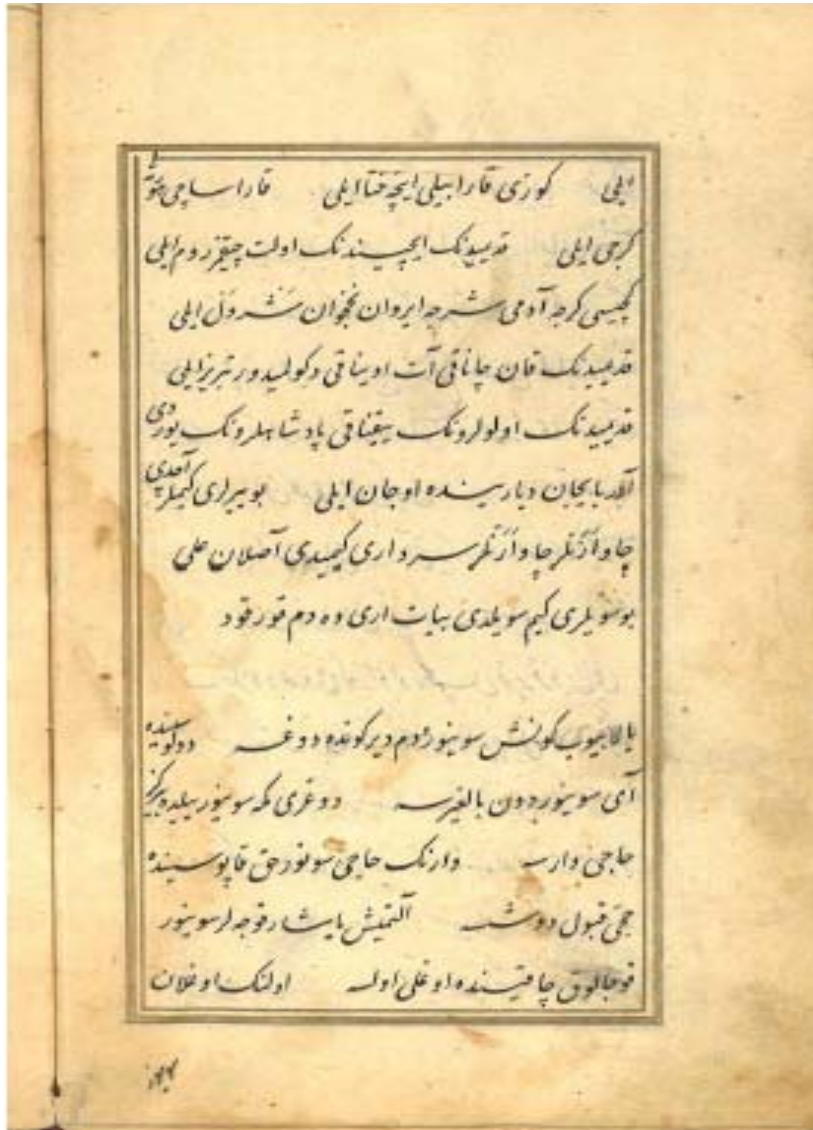 ایلی کوزی قارا بیلی اینچه ختا ایلی قارا ساچی
کرجی ایلی قدیمیدنک ایچیندنک اولت چیقر روم ایلی
کرجه آدمی شرجه ایروان نخجوان شرول ایلی
قدیمیدنک قان چاناقی آت اویناقی دکولمیدور تبریز ایلی
قدیمیدنک اولولرونک ییغناقی پادشاهلرونک یوردی
آذربایجان دیارینده اوجان ایلی بو ییرلری کیملر آچدی
سرداری کیمیدی آصلان علی
بو سویلری کیم سویلدی بیات اری دده م قورقود
کونش سوینور دم دیر کونده دوغسه
آی سوینور دون بالغیرسه دوغری مکه سوینور ییلیده
حاجی وارسه وارنک حاجی سونور حق قاپوسینده
حجی قبول دوشسه آلتمیش یاشار قوجه لر سوینور
قوجالوق چاقینده اوغلی اولسه اولنک اوغلان